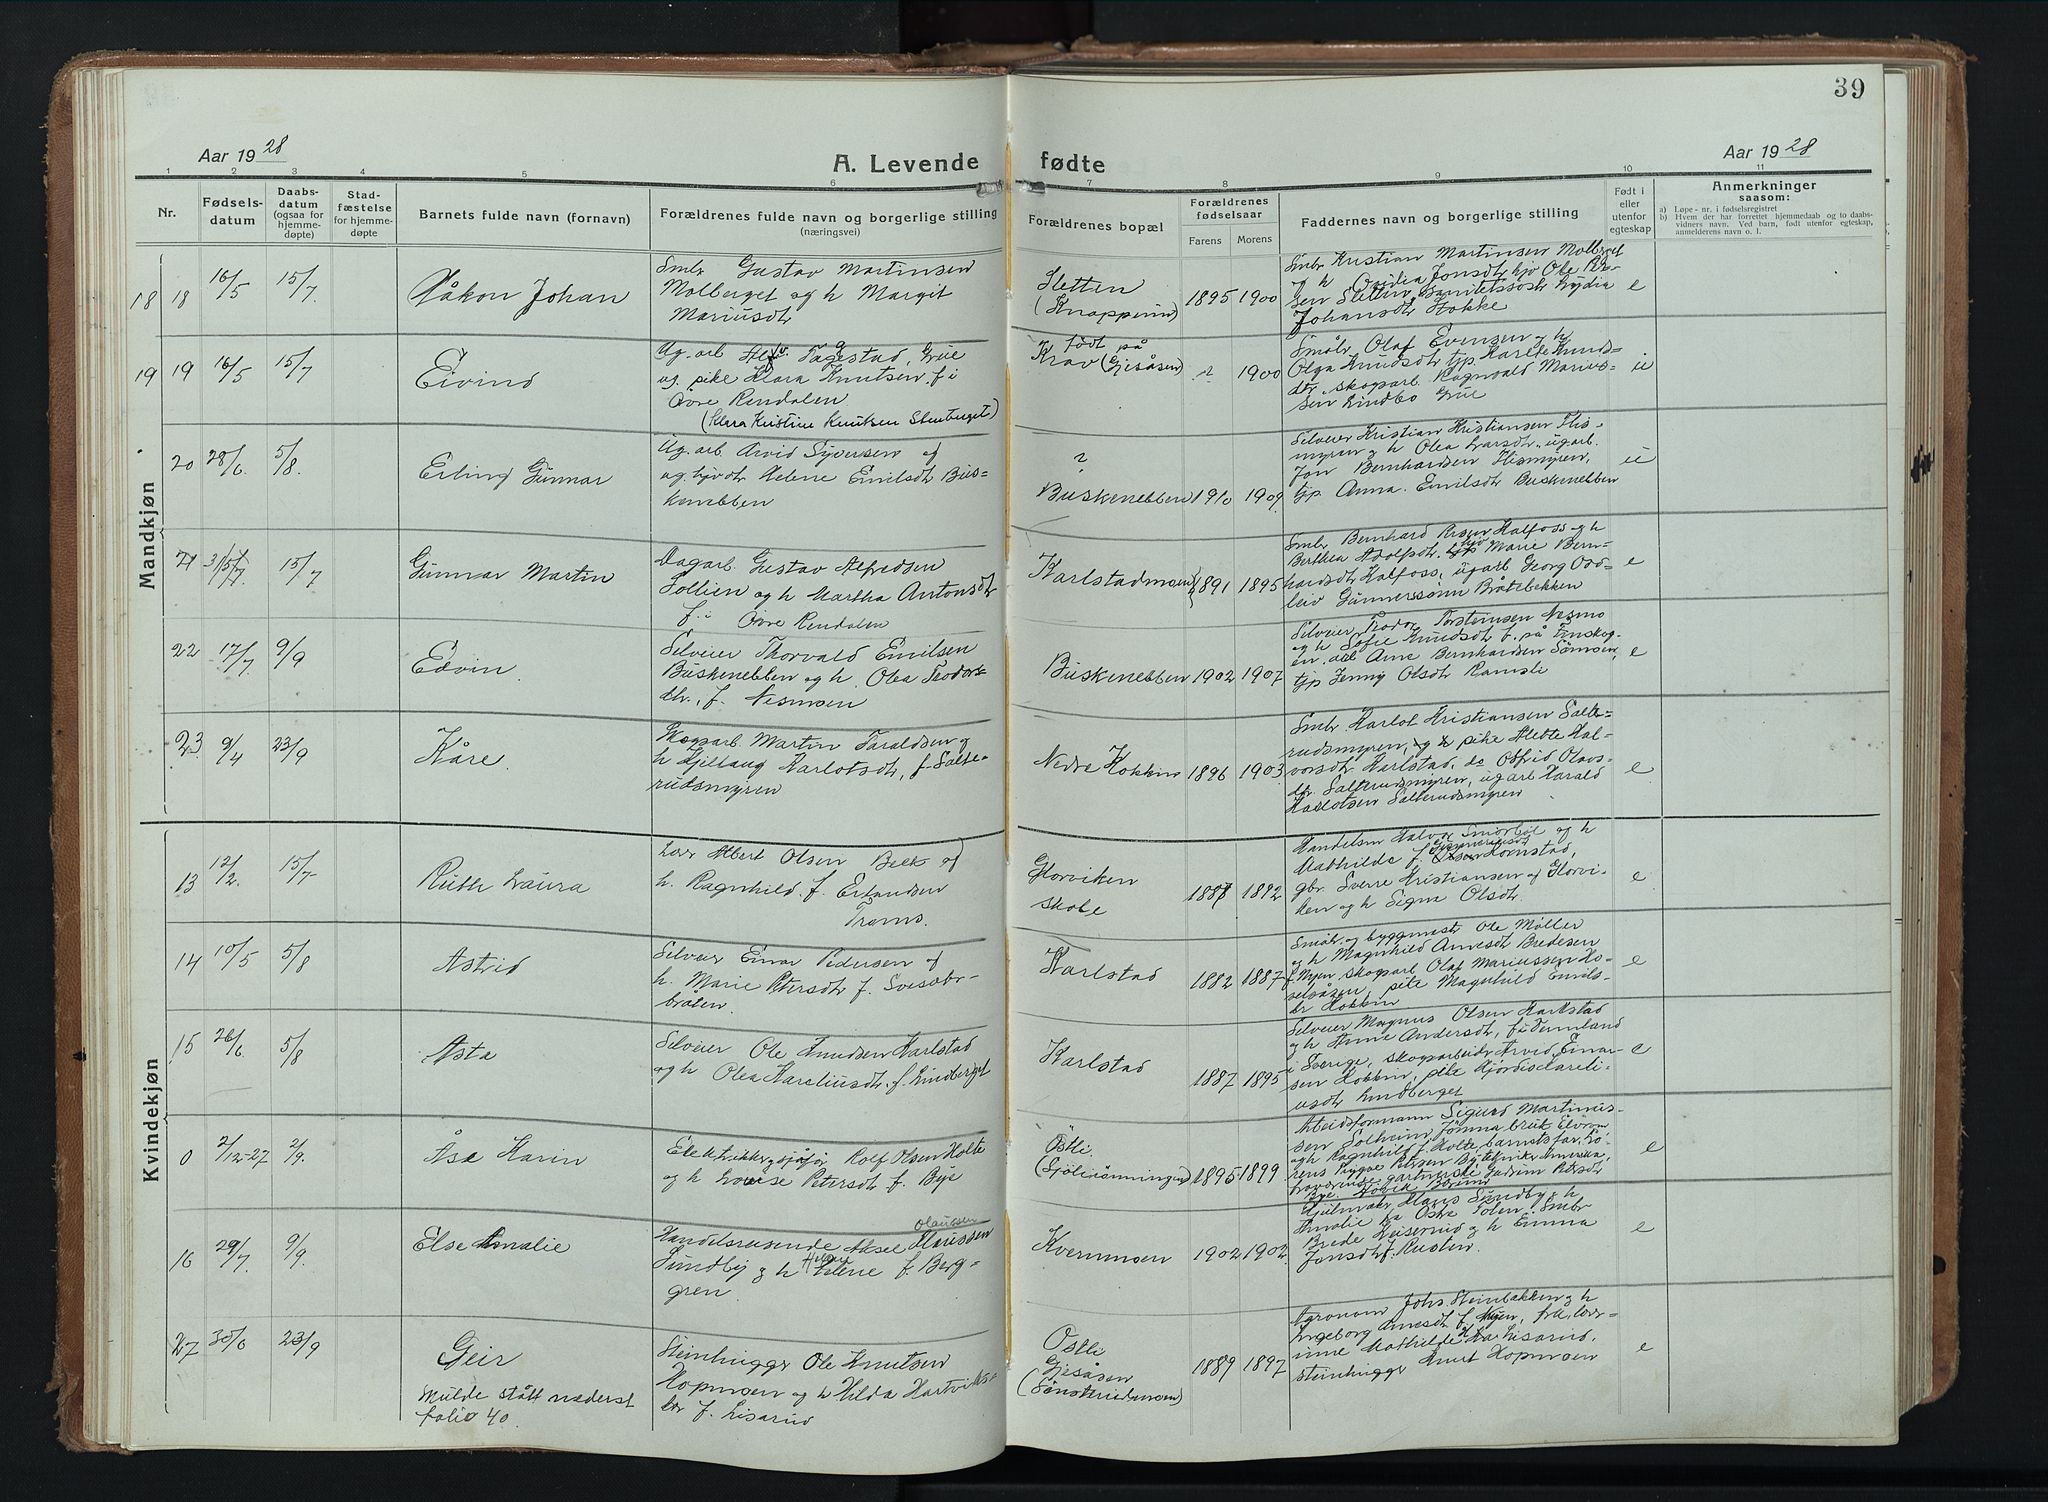 39
Aar 19 28
A. Levende fødte
Aar 19 28
1 2 3 4 5 6 7 8 9 10 11
Nr.
Fødsels-
datum
Daabs-
datum
(ogsaa for
hjemme-
døpte)
Stad-
fæstelse
for hjemme-
døpte
Barnets fulde navn (fornavn)
Forældrenes fulde navn og borgerlige stilling
(næringsvei)
Forældrenes bopæl
Forældrenes
fødselsaar
Farens
Morens
Faddernes navn og borgerlige stilling
Født i
eller
utenfor
egteskap
Anmerkninger
saasom:
a) Løpe-nr. i fødselsregistret
b) Hvem der har forrettet hjemmedaab og to daabs-
vidners navn. Ved barn, født utenfor egteskap,
anmelderens navn o. l.
Mandkjøn
18 18 16/5 15/7 Håkon Johan
Smbr Gustav Martinsen
Molberget og h Margit
Mariusdtr
Sletten
(Knappemo)
1895 1900
Smbr Kristian Martinsen Molberget
og h Jonsdtr hjv Ole
sen Sletten, Lydia
Johansdtr Stokke
e
19 19 16/5 15/7 Eivind
Ug. arb Tagestad, Grue
ug. pike Klara Knutsen f. i
Øvre Rendalen
(Klara Kristine Knutsen Stenberget)
født på
Krav (Gjesåsen)
? 1900
Småbr Olaf Evensen og h
Olga Knudsdtr tjp Knuds-
dtr, skogarb Ragnvald Marius-
sen Lindbo Grue
u
20 28/6 5/8. Erling Gunnar
Ug. arb Arvid Syversen og
ug. hjvdt Helene Emilsdtr Bus-
kenebben
?
Buskenebben 1910 1909
Selveier Kristian Kristiansen His-
myren og h Olea Larsdtr, ugarb.
Jon Bernhardsen Hismyren,
tjp Anna Emilsdtr Buskenebben
u
21 31/5 15/7 Gunnar Martin
Dagarb. Gustav Alfredsen
Sollien og h Martha Antonsdtr
f. i Øvre Rendalen
Karlstadmoen 1891 1895
Smbr Bernhard Kalfoss og h
Berthea Adolfsdtr. Marie Bern-
hardsdtr Kalfoss, ugarb Georg Odd-
leiv Gunnerssønn Bråtebekken
e
22 17/7 9/9 Edvin.
Selveier Thorvald Emilsen
Buskenebben og h. Olea Teodors-
dtr., f. Nesmoen
Buskenebben 1902 1907
Selveier Teodor Torsteinsen Nesmo
og h Sofie Knudsdtr b. på Finskog-
en, arb Arne Bernhardsen Sønsen,
tjp Jenny Olsdtr Ramsli
e
23 9/4 23/9 Kåre.
Skogarb. Martin Taraldsen og
h Gjillaug Karlotsdtr, f. Salte-
rudsmyren
Nedre Kokkin 1896 1903
Smbr Karlot Kristiansen Salte-
rudsmyren, pike Hal-
vorsdtr Karlstad, do Olavs-
dtr. Salterudsmyren, ugarb Harald
Karlotsen Salterudsmyren
e
Kvindekjøn
13 12/2. 15/7 Ruth Laura
Lær Albert Olsen Bekk og
h. Ragnhild f. Erlandsen
Troms.
Glorviken
skole
1887 1892
Handelsm Halvor og h
Mathilde f. Kornstad,
gbr. Sverre Kristiansen Glorvi-
ken og h Signe Olsdtr.
e
14 10/5 5/8 Astrid
Selveier Einar Pedersen og
h. Marie Petersdtr f. Svesæbr-
bråten
Karlstad 1882 1887
Småbr. og byggmest Ole Møller
og h Magnhild Arnesdtr Bredesen
f. Myen, skogarb Olaf Mariussen Ho-
velsåsen, pike Magnhild Emils-
dtr Kokkin
e
15 26/6 5/8 Asta
Selveier Ole Knudsen Karlstad
og h Olea Kareliusdtr. f. Lindberget
Karlstad 1887 1895
Selveier Magnus Olsen Karlstad
og h Anna Andersdtr, f. i
i Sverige, skogarbeider Arvid Einar-
sen Kokkin, pike Hjørdis Kareli-
usdtr Lindberget
e
0 2/12-27 2/9. Åse Karin
Elektrikker Rolf Olsen Holte
og h Louise Petersdtr f. Bye
Østli
1895 1899
Arbeidsformann Sigurd Martinius-
sen Solheim,
og h Ragnhild f. Holte, barnets far,
Trygve Petersen Bye Amerika,
Gudrun Petersdtr
Bye
e
16 29/7. 9/9. Else Amalie
Olaussen
Handelsreisende Aksel Klaussen
Sundby og h Helene f. Berg-
gren
Kvernmoen 1902 1902
Hjulmaker Klaus Sundby og h
Amalie fra Østre Toten, Smbr
Brede Keiserud og h Emma
Jonsdtr f. Rusten
e
27 30/6 23/9 Geir
Skulde stått nederst
folio 40.
Steinhugger Ole Knutsen
Kopmoen og h Hilda Hartviks-
dtr f. Lisarud
Østli
Gjesåsen
1889 1897
Agronom Johs. Steinbakken og h
Ingeborg Arnesdtr f. Myen, frk. lær-
inne Mathilde Lisarud,
steinhugger Knut Kopmoen
e